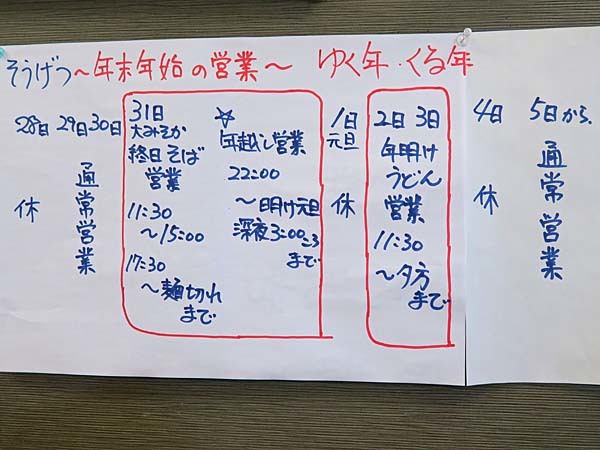 そうげつ～年末年始の営業～ ゆく年・くる年
28日
休
29日30日
通常営業
31日
大みそか
終日そば
営業
11:30
～15:00
17:30
～麺切れ
まで
☆
年越し営業
22:00
～明け元旦
深夜3:00ころ
まで
1日
元旦
休
2日 3日
年明け
うどん
営業
11:30
～夕方
まで
4日
休
5日から
通常営業